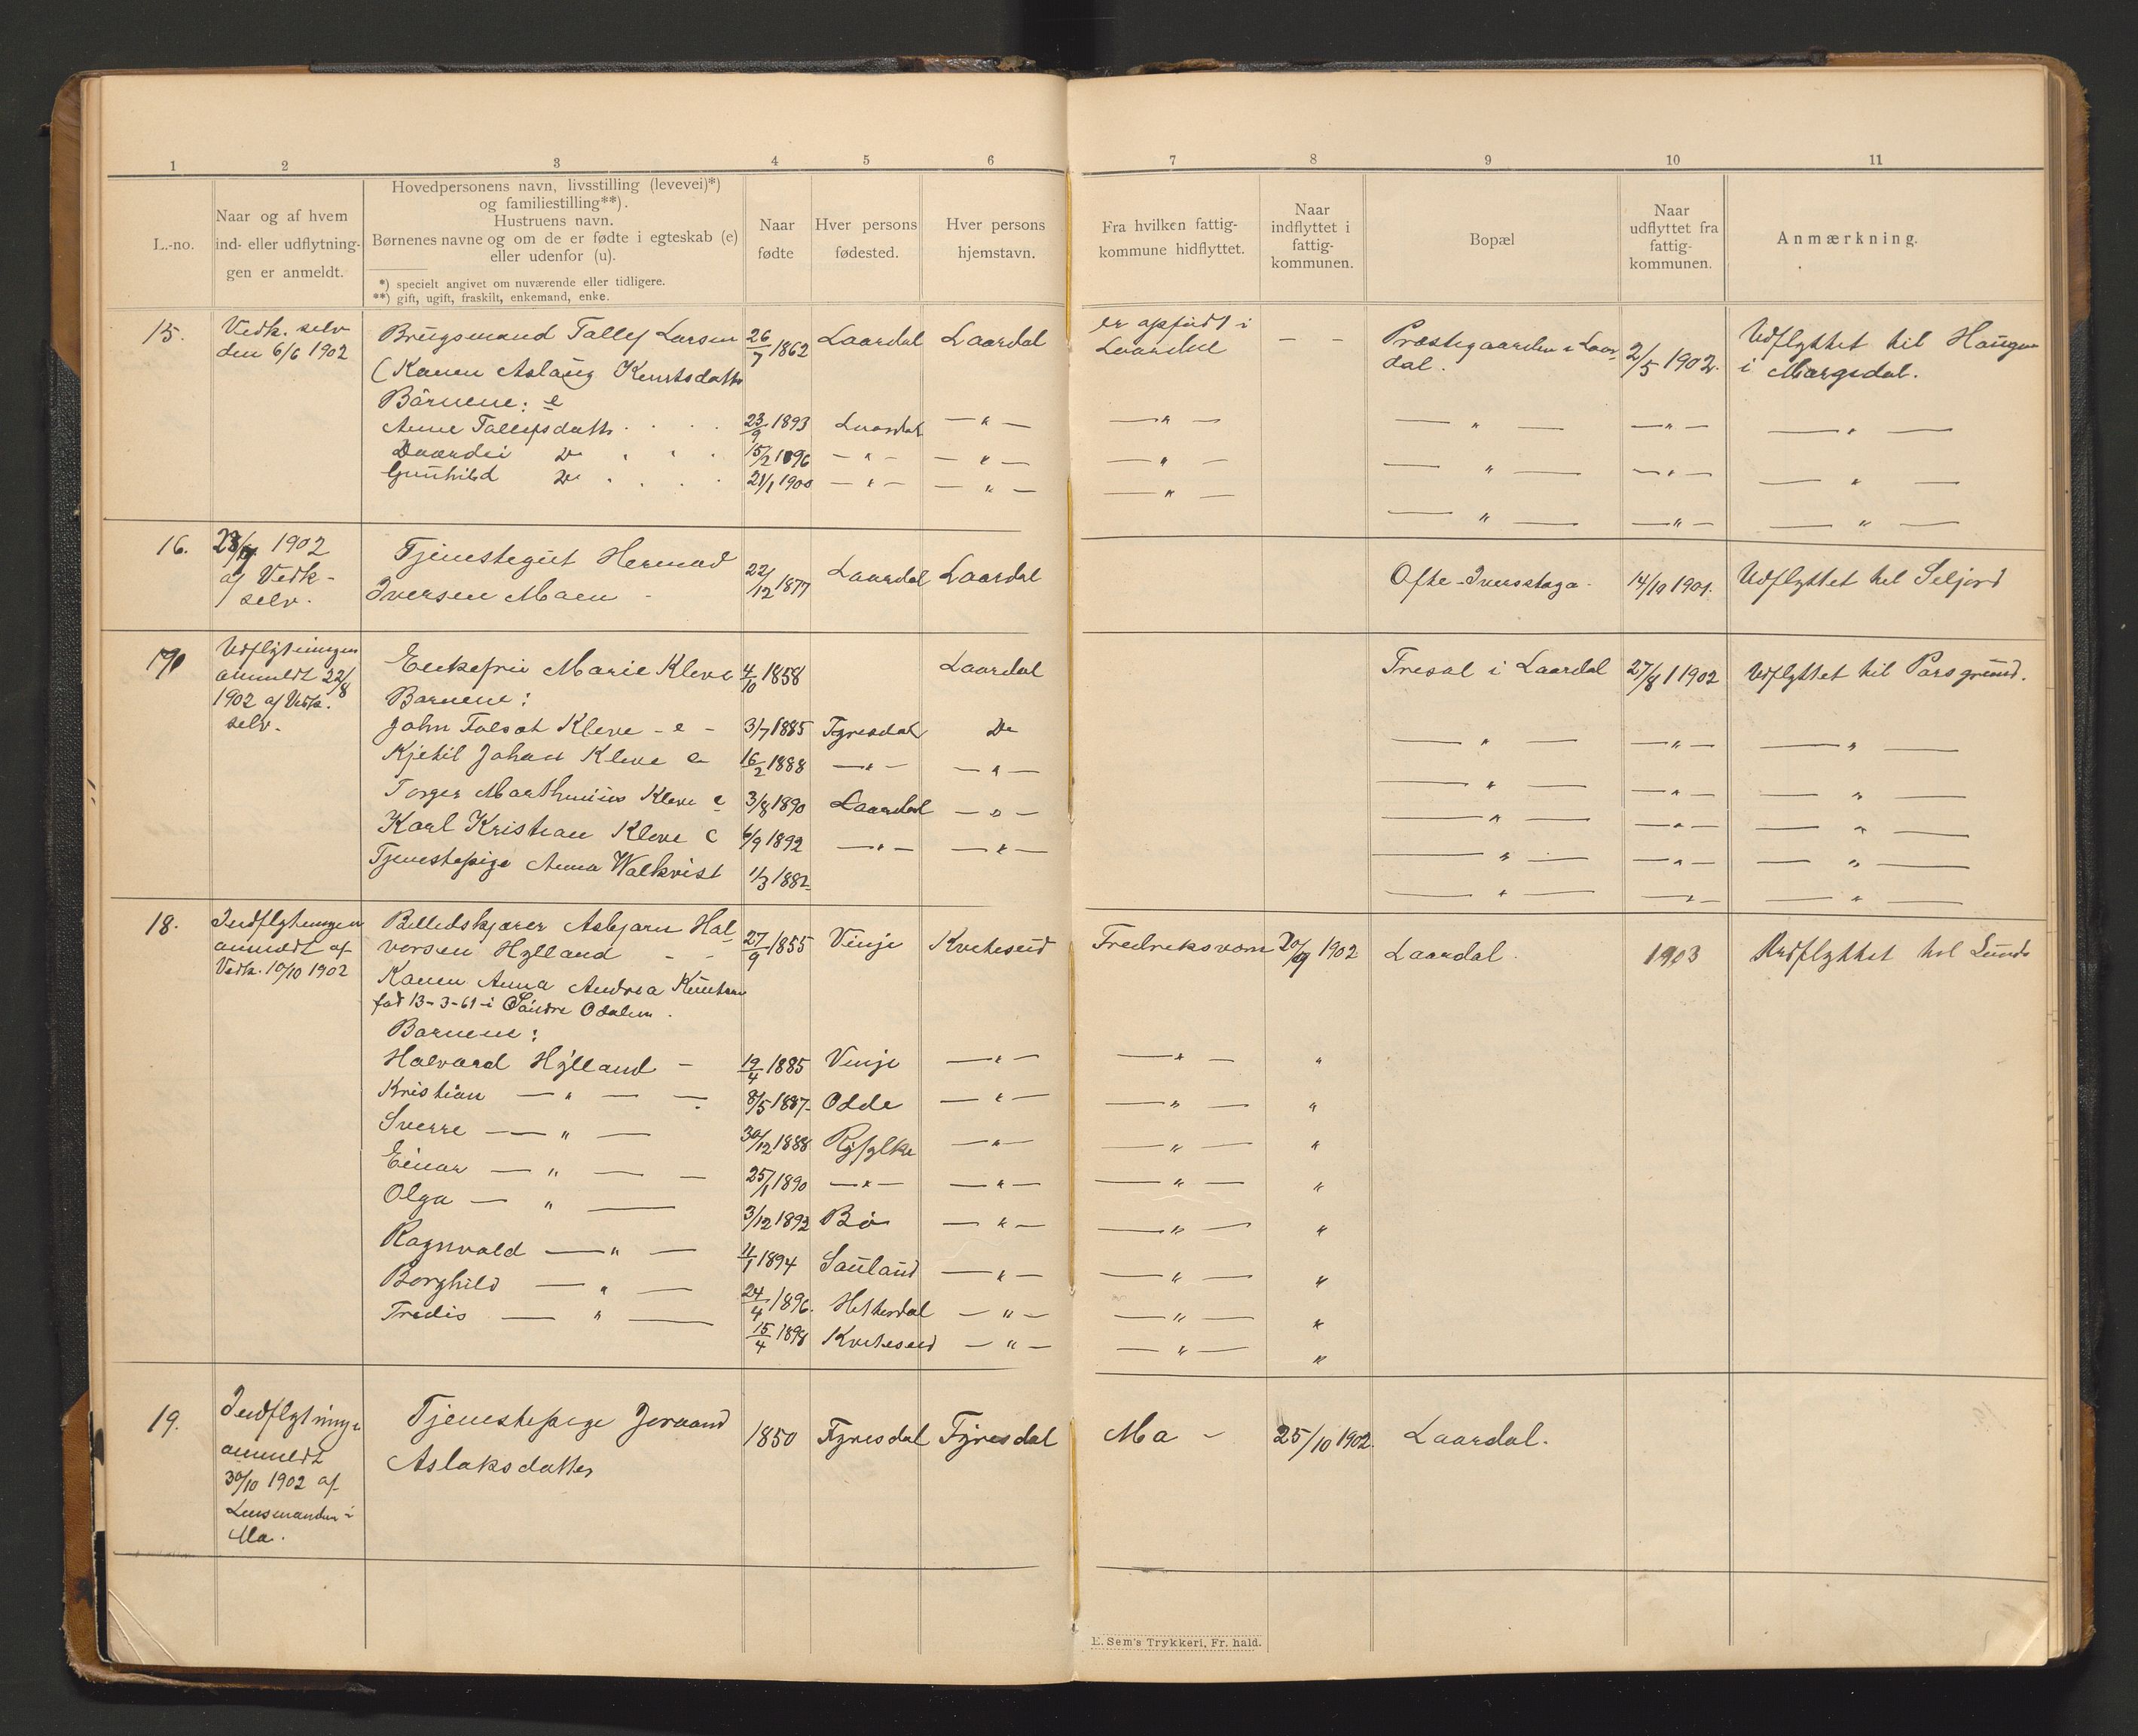 1 2 3 4 5 6 7 8 9 10 11
L.-no.
Naar og af hvem
ind- eller udflytnin-
gen er anmeldt.
Hovedpersonens navn, livsstilling (levevei)*)
og familiestilling**).
Hustruens navn.
Børnenes navne og om de er fødte i egteskab (e)
eller udenfor (u).
*) specielt angivet om nuværende eller tidligere.
**) gift, ugift, fraskilt, enkemand, enke.
Naar
fødte
Hver persons
fødested.
Hver persons
hjemstavn.
Fra hvilken fattig-
kommune hidflyttet.
Naar
indflyttet i
fattig-
kommunen.
Bopæl
Naar
udflyttet fra
fattig-
kommunen.
Anmærkning.
15.
Vedk. selv
den 6/6 1902
Brugsmand Tallef Larsen 26/7 1862 Laardal Laardal
er opfødt i
Laardal
— —
Præstegaarden i Laar-
dal.
2/5 1902.
Udflyttet til Haugen
i Morgedal.
(Konen Aslaug Knutsdatter
Børnene: e
Anne Tallefsdatter . . . 23/9 1893 Laardal — " — — " — — " — — " — — " —
Daardei Do . . . 15/2 1896 — " — — " — — " — — " — — " — — " —
Gunhild Do . . . 21/1 1900 — " — — " — — " — — " — — " — — " —
16.
23/7 1902
af Vedk-
selv.
Tjenestegut Hermod
Iversen Moen -
22/12 1877 Laardal Laardal Ofte-Iversstoga. 14/10 1901. Udflyttet til Seljord
17
Udflytningen
anmeldt 22/8
1902 af Vedk.
selv.
Enkefru Marie Kleve 4/10 1858 Laardal Tresal i Laardal 27/8 1902 Udflyttet til Porsgrund.
Børnene:
John Tolsat Kleve - e - 3/7 1885 Fyresdal Do — " — — " — — " —
Kjetil Johan Kleve e 16/2 1888 — " — — " — — " — — " — — " —
Torger Marthinius Kleve e 3/8 1890 Laardal — " — — " — — " — — " —
Karl Kristian Kleve e 6/9 1892 — " — — " — — " — — " — — " —
Tjenestepige Anna Walkvist 1/3 1882 — " — — " — — " —
18.
Indflytningen
anmeldt af
Vedk. 10/10 1902
Billedskjærer Asbjørn Hal-
vorsen Hylland - -
27/9 1855 Vinje Kviteseid Fredriksværn 20/9 1902 Laardal. 1903 Udflyttet til Lunde
Konen Anna Andrea Knutsen
fød 13-3-61 i Søndre Odalen.
Børnene:
Halvard Hylland - 19/4 1885 Vinje — " — — " — "
Kristian — " — — 8/5 1887 Odde — " — — " — "
Sverre — " — 30/12 1888 Ryfylke — " — — " — "
Einar — " — — 25/1 1890 — " — — " — — " — "
Olga — " — 3/12 1892 Bø — " — — " — "
Ragnvald — " — 4/1 1894 Sauland — " — — " — "
Borghild — " — 24/4 1896. Hitterdal — " — — " — "
Tredis — " — 15/4 1898 Kviteseid — " — — " — "
19.
Indflytningen
anmeldt
30/10 1902 af
Lensmanden i
Mo.
Tjenestepige Joraand
Aslaksdatter
1850 Fyresdal Fyresdal Mo - 25/10 1902. Laardal.
E. Sem's Trykkeri, Fr. hald.